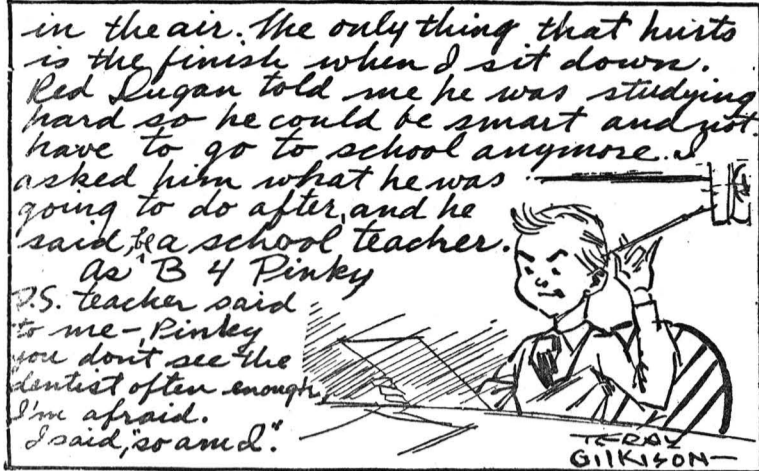 in the air. The only thing that hurts
is the finish when I sit down.
Red Dugan told me he was studying
hard so he could be smart and not
have to go to school anymore. I
asked him what he was
going to do after, and he
said, be a school teacher.
As B 4 Pinky
P.S. teacher said
to me-, Pinky
you don't see the
dentist often enough,
I'm afraid.
I said, "so am I".
TERAL
GILKISON-